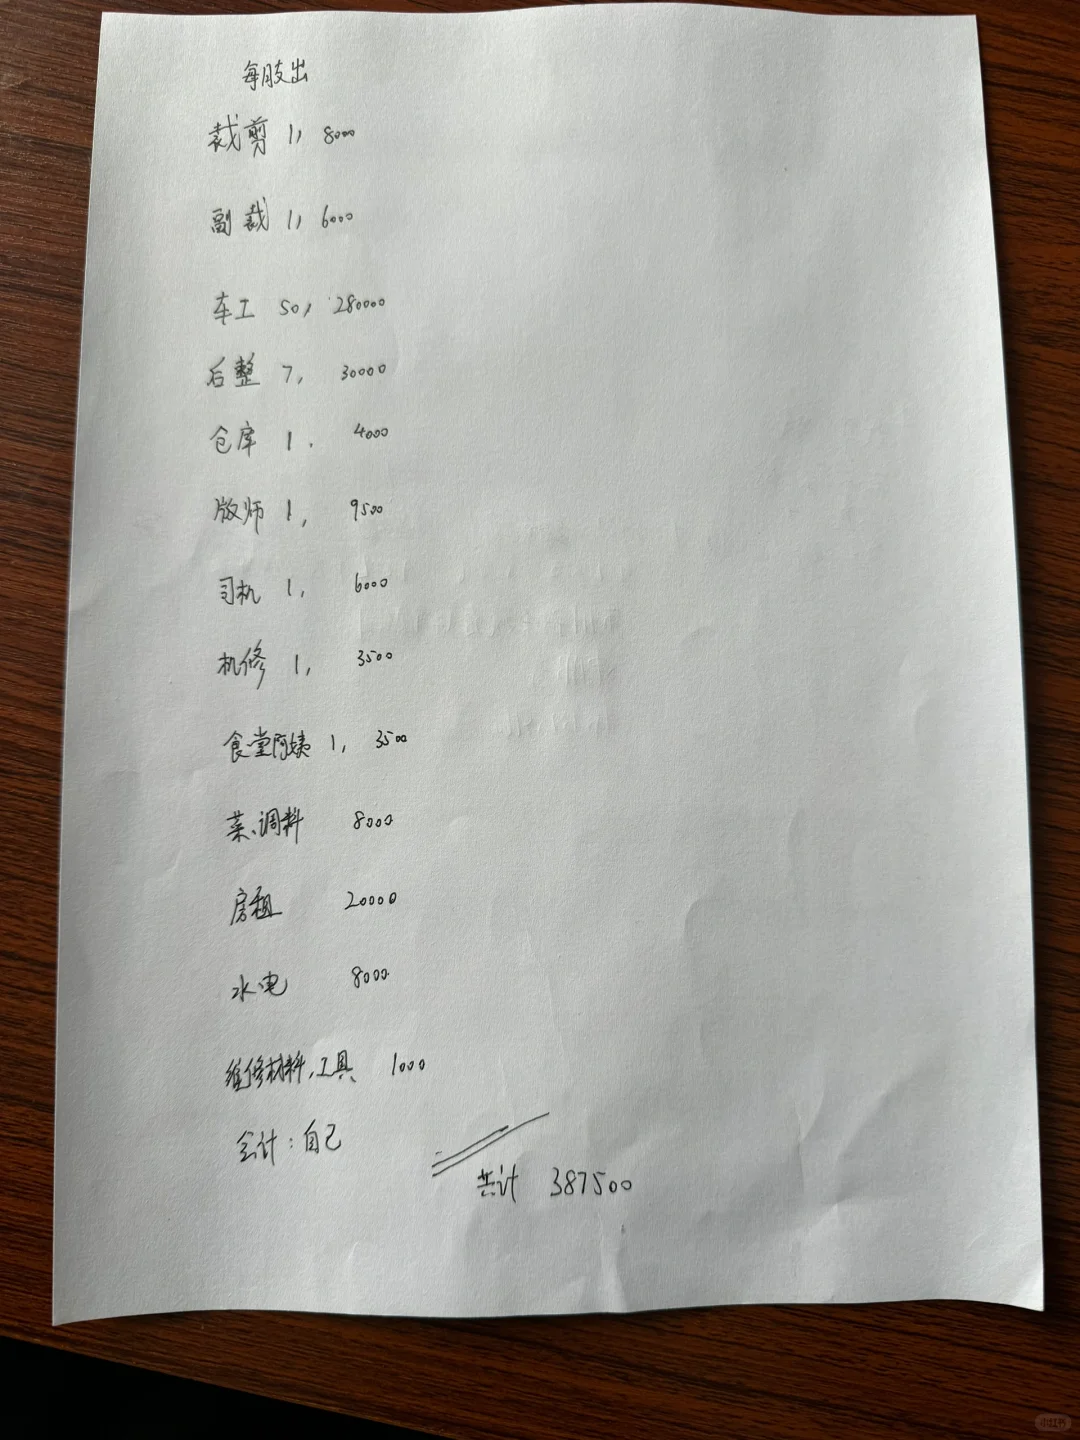 每月支出
裁剪 1, 8000
副裁 1, 6000
车工 50, 280000
后整 7, 30000
仓库 1. 4000
版师 1, 9500
司机 1, 6000
机修 1, 3500
食堂阿姨 1, 3500
菜、调料 8000
房租 20000
水电 8000
维修材料,工具 1000
会计:自己
共计 387500
小红书